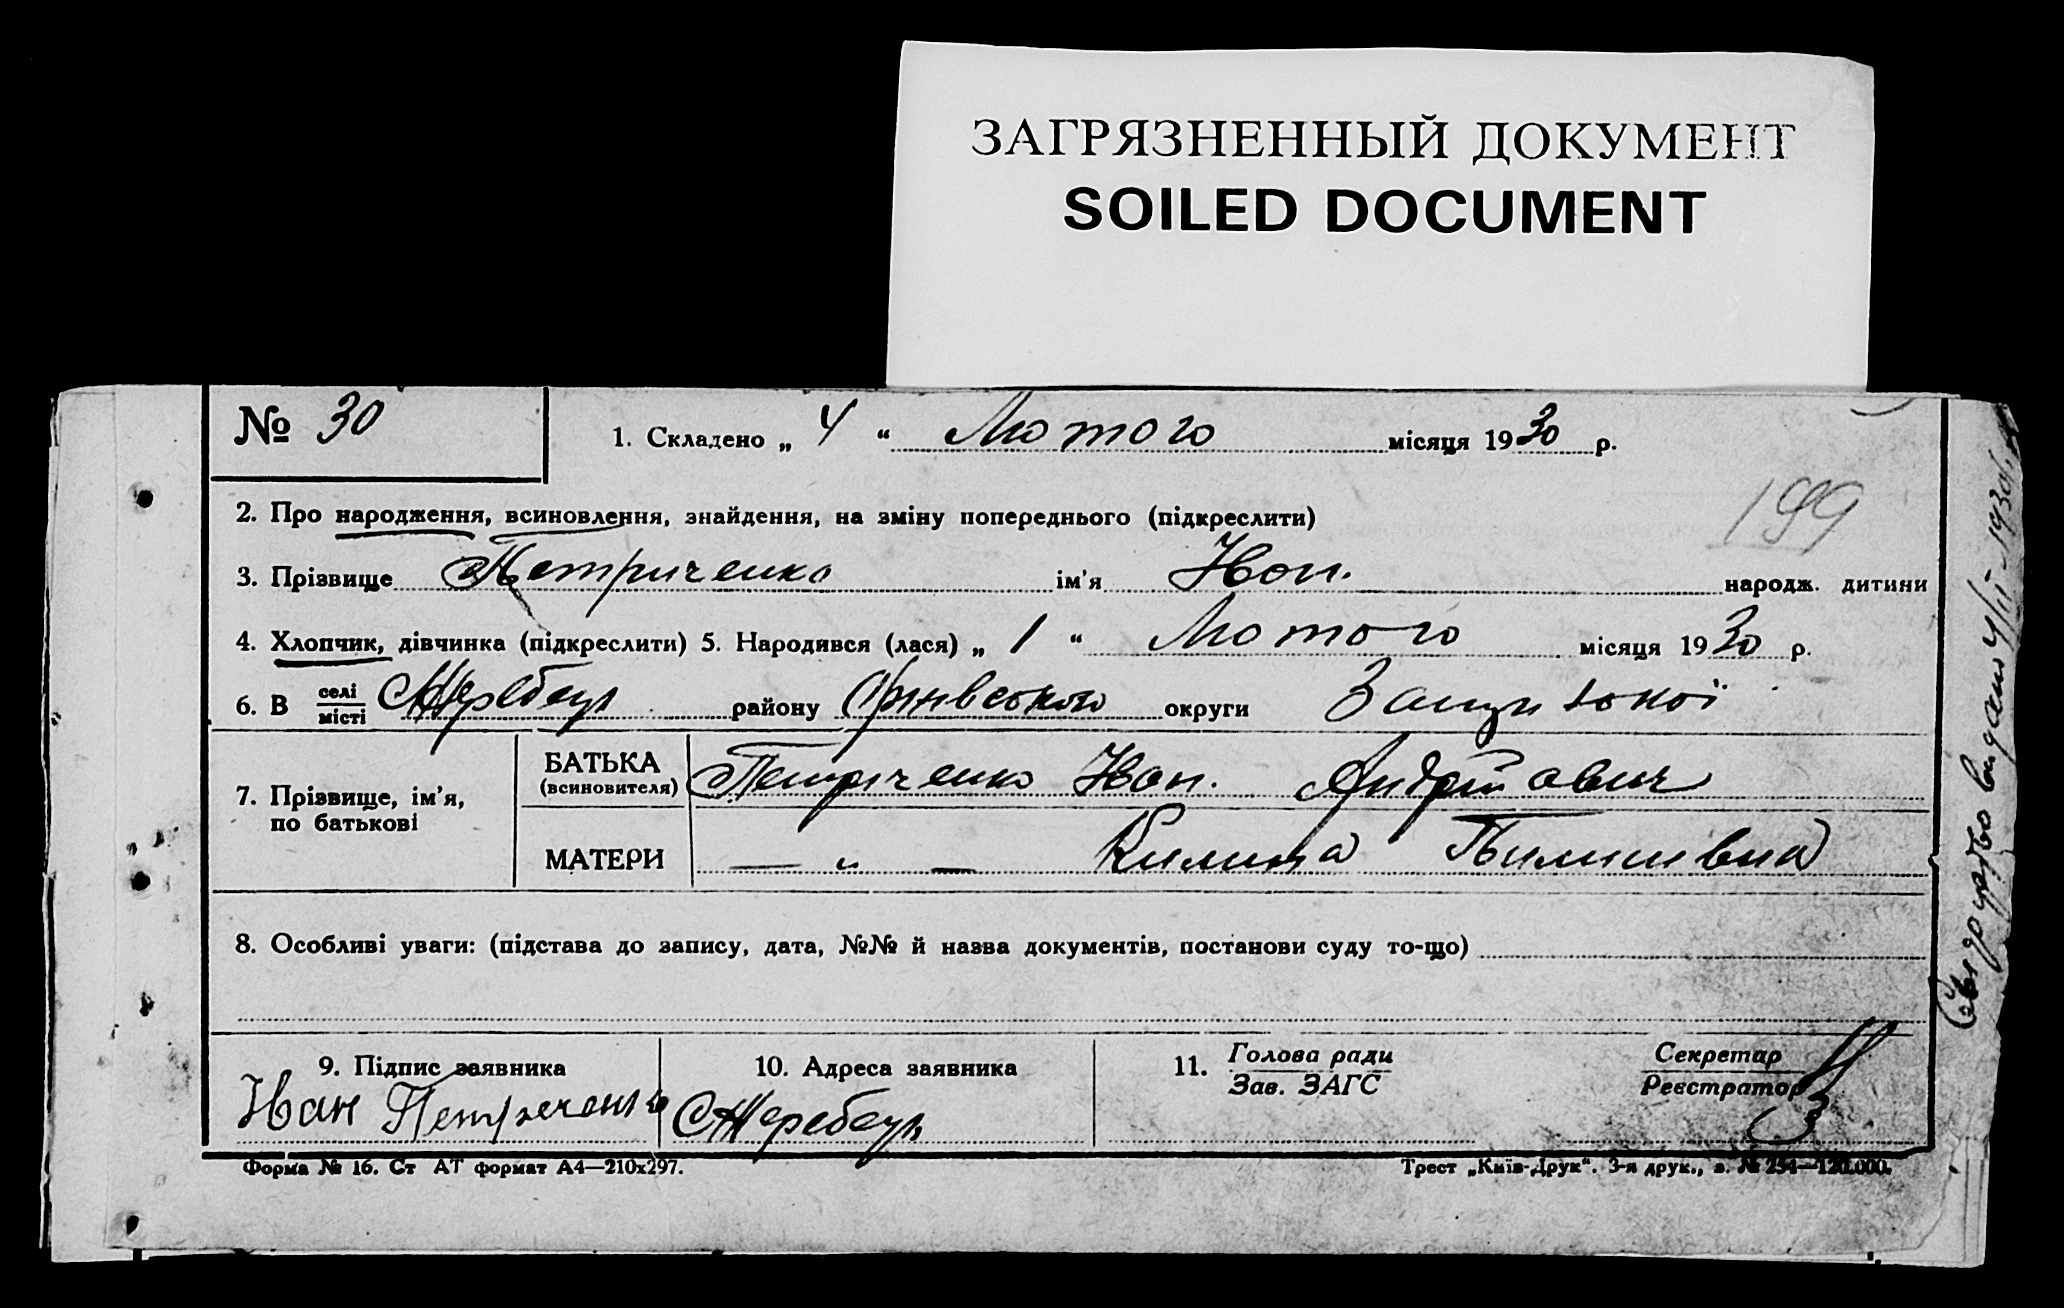 ЗАГРЯЗНЕННЫЙ ДОКУМЕНТ
SOILED DOCUMENT
№ 30
1. Складено „ 4 “ Лютого місяця 1930 р.
199
2. Про народження, всиновлення, знайдення, на зміну попереднього (підкреслити)
3. Прізвище Петриченко ім'я Іван. народж. дитини
4. Хлопчик, дівчинка (підкреслити) 5. Народився (лася) „ 1 “ Лютого місяця 1930 р.
6. В селі/місті С Жеребець району Оріхівського округи
7. Прізвище, ім'я, по батькові
БАТЬКА (всиновителя) Петриченко Іван. Андрійович
МАТЕРИ — „ — Килина Пилипівна
8. Особливі уваги: (підстава до запису, дата, №№ й назва документів, постанови суду то-що)
9. Підпис заявника
Іван Петреченко
10. Адреса заявника
С Жеребець
11. Голова ради / Зав. ЗАГС
Секретар / Реєстратор
Форма № 16. Ст АТ формат А4—210х297.
Трест „Київ-Друк“. 3-я друк., з. № 254—120.000.
видано 4/II 1930